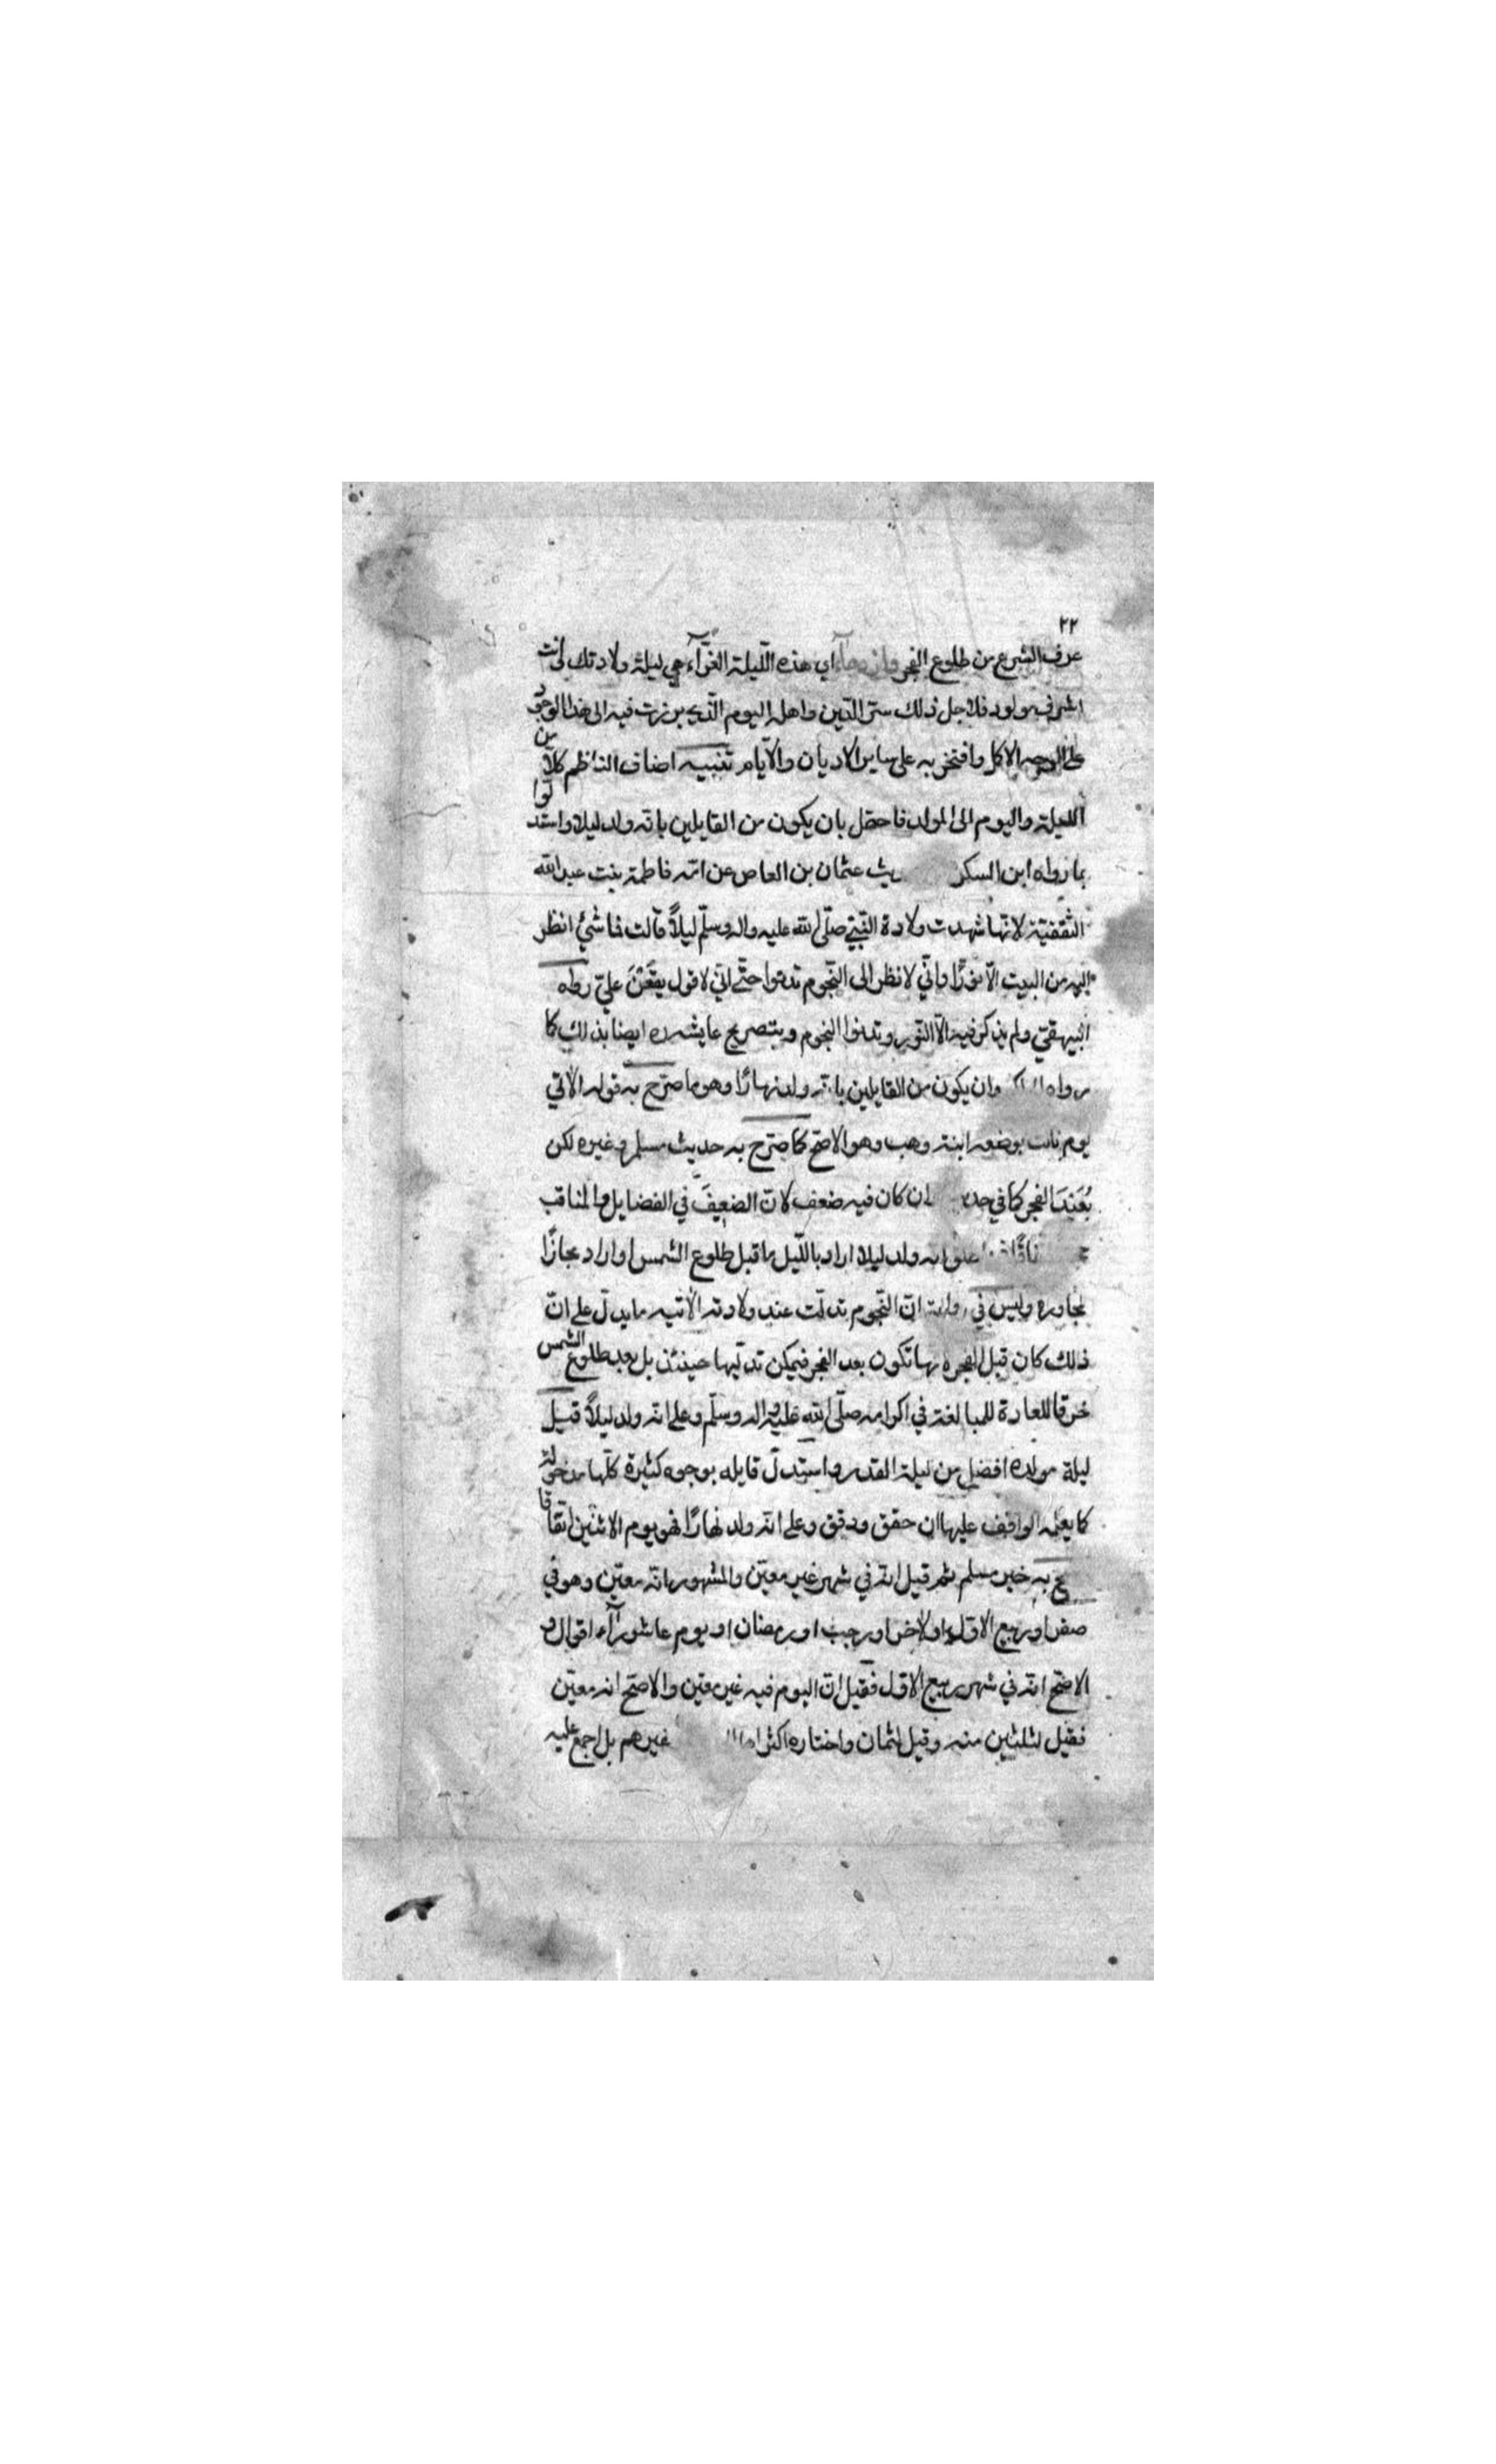 ٢٢
عرف الشرع من طلوع الفجر اي هذه اللّيلة الغرّآء هي ليلة ولادتك لانت
اشرف مولود فلاجل ذلك ستر الدّين واهله اليوم الّذي برزت فيه الى هذا الوجود
على الوجه الاكل وافتخر به على ساير الاديان والايّام تنبيه اضاف النّاظم كلاّ من
اللّيلة واليوم الى المولد فاحتمل بان يكون من القايلين بانّه ولد ليلا واستدلّوا
بما رواه ابن السكن عثمان بن العاص عن امّه فاطمة بنت عبد الله
الثقفيّة لانّها شهدت ولادة النّبيّ صلّى الله عليه واله وسلّم ليلاً قالت فما شئ انظر
اليه من البيت الاّ نورًا وانّي لانظر الى النّجوم تدنوا حتّى انّي لاقول يقعن عليّ رواه
البيهقيّ ولم يذكر فيه الاّ النّور وتدنوا النجوم وبتصريح عايشه ايضا بذلك كما
رواه وان يكون من القايلين بانّه ولد نهارًا وهو ما صرّح به قوله الآتي
يوم نالت بوضعه ابنة وهب وهو الاصحّ كما صرّح به حديث مسلم وغيره لكن
بُعَيْدَ الفجر كما في ان كان فيه ضعف لانّ الضعيفَ في الفضايل والمناقب
انّه ولد ليلا اراد باللّيل ما قبل طلوع الشمس او اراد مجازًا
لمجاوره وليس في رواية انّ النّجوم تدلّت عند ولادته الاتيه ما يدلّ على انّ
ذلك كان قبل الفجر تكون بعد الفجر فيمكن تدلّيها حينئذ بل بعد طلوع الشمس
خرقا للعادة للمبالغة في اكرامه صلّى الله عليه واله وسلّم وعلى انّه ولد ليلاً قيل
ليلة مولده افضل من ليلة القدر واستدلّ قايله بوجوه كثيرة كلّها مدخولة
كما يعلمه الواقف عليها ان حقق ودقق وعلى انّه ولد نهارًا فهو يوم الاثنين اتّفاقا
به خبر مسلم ثم قيل انّه في شهر غير معيّن والمشهور انّه معيّن وهو في
صفر او ربيع الاوّل او الآخر او رجب او رمضان او يوم عاشورآء اقوال و
الاصّح انّه في شهر ربيع الاوّل فقيل انّ اليوم فيه غير معيّن والاصحّ انه معيّن
فقيل لثلثين منه وقيل لثمان واختاره اكثر غيرهم بل اجمع عليه